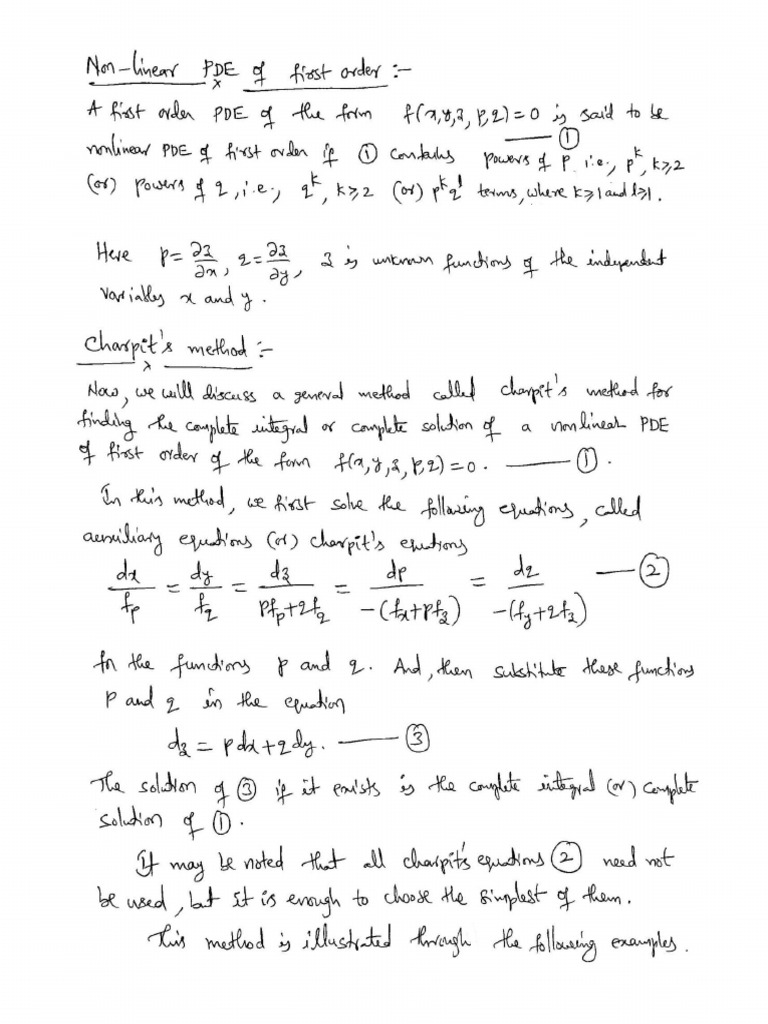 Non-linear PDE of first order :-
A first order PDE of the form f(x,y,z,p,q)=0 is said to be
—— ①
nonlinear PDE of first order if ① contains powers of p, i.e., p^k, k≥2
(or) powers of q, i.e., q^k, k≥2 (or) p^k q^l terms, where k≥1 and l≥1.
Here p = ∂z/∂x, q = ∂z/∂y, z is unknown functions of the independent
variables x and y.
Charpit's method :-
Now, we will discuss a general method called charpit's method for
finding the complete integral or complete solution of a nonlinear PDE
of first order of the form f(x,y,z,p,q)=0. —— ①.
In this method, we first solve the following equations, called
auxiliary equations (or) charpit's equations
dx/f_p = dy/f_q = dz/(pf_p+qf_q) = dp/-(f_x+pf_z) = dq/-(f_y+qf_z) —— ②
for the functions p and q. And, then substitute these functions
p and q in the equation
dz = pdx+qdy. —— ③
The solution of ③ if it exists is the complete integral (or) complete
solution of ①.
It may be noted that all charpit's equations ② need not
be used, but it is enough to choose the simplest of them.
This method is illustrated through the following examples.